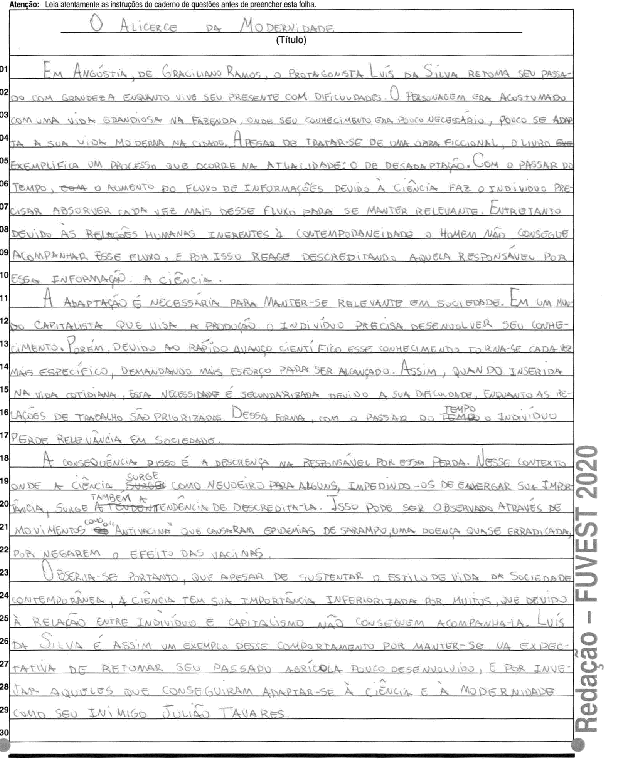 Atenção: Leia atentamente as instruções do caderno de questões antes de preencher esta folha.
O ALICERCE DA MODERNIDADE
(Título)
01 EM ANGÚSTIA, DE GRACILIANO RAMOS, O PROTAGONISTA LUÍS DA SILVA RETOMA SEU PASSA-
02 DO COM GRANDEZA ENQUANTO VIVE SEU PRESENTE COM DIFICULDADES. O PERSONAGEM ERA ACOSTUMADO
03 COM UMA VIDA GRANDIOSA NA FAZENDA, ONDE SEU CONHECIMENTO ERA POUCO NECESSÁRIO, POUCO SE ADAP
04 TA A SUA VIDA MODERNA NA CIDADE. APESAR DE TRATAR-SE DE UMA OBRA FICCIONAL, O LIVRO
05 EXEMPLIFICA UM PROCESSO QUE OCORRE NA ATUALIDADE: O DE DESADAPTAÇÃO. COM O PASSAR DO
06 TEMPO, O AUMENTO DO FLUXO DE INFORMAÇÕES DEVIDO À CIÊNCIA FAZ O INDIVÍDUO PRE-
07 CISAR ABSORVER CADA VEZ MAIS DESSE FLUXO PARA SE MANTER RELEVANTE. ENTRETANTO
08 DEVIDO ÀS RELAÇÕES HUMANAS INERENTES À CONTEMPORANEIDADE O HOMEM NÃO CONSEGUE
09 ACOMPANHAR ESSE FLUXO, E POR ISSO REAGE DESCREDITANDO AQUELA RESPONSÁVEL POR
10 ESSA INFORMAÇÃO: A CIÊNCIA.
11 A ADAPTAÇÃO É NECESSÁRIA PARA MANTER-SE RELEVANTE EM SOCIEDADE. EM UM MUN-
12 DO CAPITALISTA QUE VISA A PRODUÇÃO O INDIVÍDUO PRECISA DESENVOLVER SEU CONHE-
13 CIMENTO. PORÉM, DEVIDO AO RÁPIDO AVANÇO CIENTÍFICO ESSE CONHECIMENTO TORNA-SE CADA VEZ
14 MAIS ESPECÍFICO, DEMANDANDO MAIS ESFORÇO PARA SER ALCANÇADO. ASSIM, QUANDO INSERIDA
15 NA VIDA COTIDIANA, ESTA NECESSIDADE É SECUNDARIZADA DEVIDO A SUA DIFICULDADE, ENQUANTO AS RE-
16 LAÇÕES DE TRABALHO SÃO PRIORIZADAS. DESSA FORMA, COM O PASSAR DO TEMPO O INDIVÍDUO
17 PERDE RELEVÂNCIA EM SOCIEDADE.
18 A CONSEQUÊNCIA DISSO É A DESCRENÇA NA RESPONSÁVEL POR ESSA PERDA. NESSE CONTEXTO
19 ONDE A CIÊNCIA SURGE COMO NEVOEIRO PARA ALGUNS, IMPEDINDO-OS DE ENXERGAR SUA IMPOR-
20 TÂNCIA, SURGE TAMBÉM A TENDÊNCIA DE DESCREDITA-LA. ISSO PODE SER OBSERVADO ATRAVÉS DE
21 MOVIMENTOS COMO O "ANTIVACINA" QUE CAUSARAM EPIDEMIAS DE SARAMPO, UMA DOENÇA QUASE ERRADICADA,
22 POR NEGAREM O EFEITO DAS VACINAS.
23 OBSERVA-SE PORTANTO, QUE APESAR DE SUSTENTAR O ESTILO DE VIDA DA SOCIEDADE
24 CONTEMPORÂNEA, A CIÊNCIA TÊM SUA IMPORTÂNCIA INFERIORIZADA POR MUITOS, QUE DEVIDO
25 À RELAÇÃO ENTRE INDIVÍDUO E CAPITALISMO NÃO CONSEGUEM ACOMPANHA-LA. LUÍS
26 DA SILVA É ASSIM UM EXEMPLO DESSE COMPORTAMENTO POR MANTER-SE NA EXPEC-
27 TATIVA DE RETOMAR SEU PASSADO AGRÍCOLA POUCO DESENVOLVIDO, E POR INVE-
28 JAR AQUELES QUE CONSEGUIRAM ADAPTAR-SE À CIÊNCIA E À MODERNIDADE
29 COMO SEU INIMIGO JULIÃO TAVARES.
30
Redação – FUVEST 2020